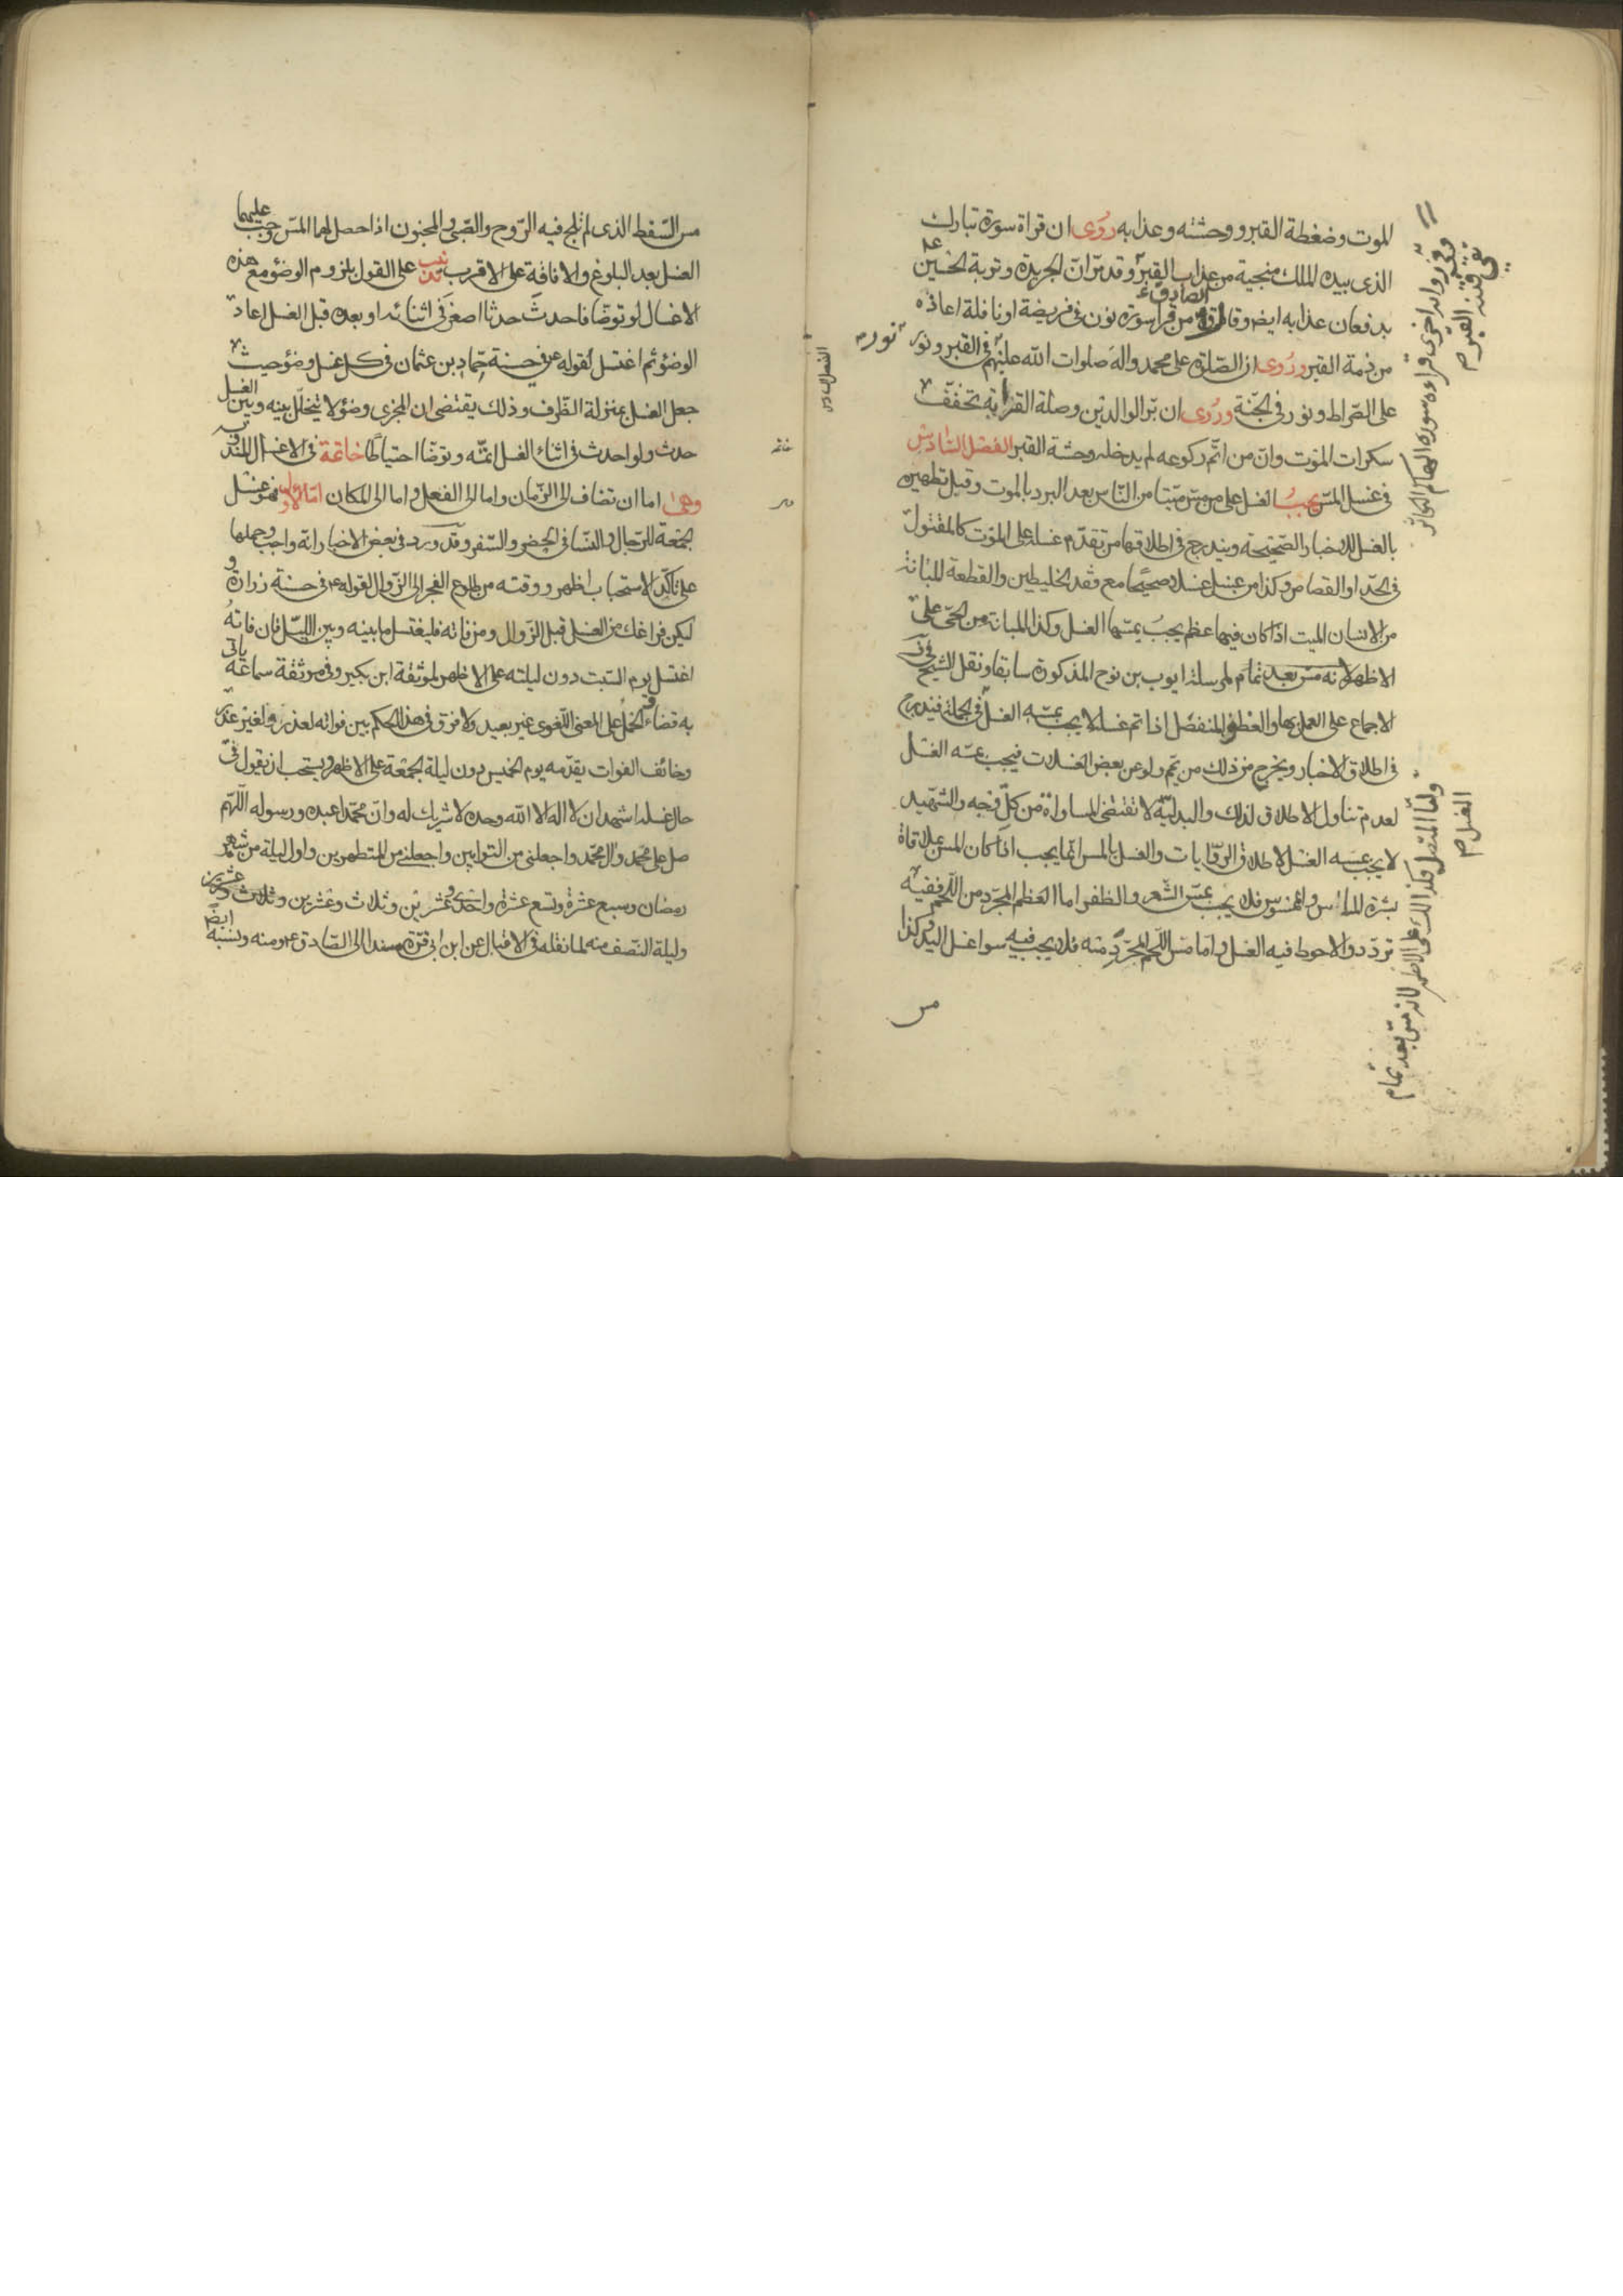 الموت وضغطة القبر ووحشته وعذابه روى ان قراة سورة تبارك
الذى بيده الملك منجية من عذاب القبر وقد مرّ انّ الجريدة وتربة الحسين
يدفعان عذابه ايض وقال الصادق ع من قرا سورة نون فى فريضة او نافلة اعاذه
من ضمة القبر وروى ان الصّلوة على محمد واله صلوات الله عليهم فى القبر ونور
على الصّراط ونور فى الجنّة وروى ان برّ الوالدين وصلة القرابة تخفّف
سكرات الموت وان من اتمّ ركوعه لم يدخله وحشة القبر الفصل السّادس
فى غسل المسّ يجبُ الغسل على من مسّ ميّتا من النّاس بعد البرد بالموت وقبل تطهيره
بالغسل للاخبار الصّحيحة ويندرج فى اطلاقها من تقدّم غسله على الموت كالمقتول
فى الحدّ او القصاص وكذا من غسل غسلا صحيحًا مع فقد الخليطين والقطعة المبانة
من الانسان الميت اذا كان فيها عظم يجبُ بمسّها الغسل وكذا المبانة من الحىّ على
الاظهر لانه مسّ بعد تمام لمرسلة ايوب بن نوح المذكورة سابقا ونقل الشيخ
الاجماع على العمل بها والعظم المنفصل اذا تم غسله لا يجب بمسّه الغسل فى الجملة فيندرج
فى اطلاق الاخبار ويخرج من ذلك من يمّم ولو عن بعض الغسلات فيجب بمسّه الغسل
لعدم تناول الاطلاق لذلك والبدليّة لا تقتضى المساواة من كلّ وجه والشّهيد
لا يجب بمسه الغسل لاطلاق الرّوايات والغسل بالمس انّما يجب اذا كان المسّ بملاقاة
بشرة للماس والممسوس فلا يجب بمسّ الشّعر والظفر اما العظم المجرّد من اللّحم ففيه
تردّد والاحوط فيه الغسل وامّا مسّ اللّحم المجرّد منه فلا يجب فيه سوا غسل اليد وكذا
مس
وفى رواية اخرى قراءة سورة الهيكم التكاثر
تقى فتنة القبر م
نور م
ولمّا المتصل فكذلك على الاظهر لانه مسّ بعد تمام
الغسل م
الفصل السادس
مس السّقط الذى لم تلج فيه الرّوح والصّبى والمجنون اذا حصل لهما المسّ وجب عليهما
الغسل بعد البلوغ والافاقة على الاقرب تذنيب على القول بلزوم الوضوء مع هذه
الاغسال لو توضّا فاحدثَ حدثا اصغر فى اثنائه او بعده قبل الغسل اعاد
الوضوء ثم اغتسل لقوله ع فى حسنة حمّاد بن عثمان فى كل غسل وضوء حيث
جعل الغسل بمنزلة الظّرف وذلك يقتضى ان المجزى وضوء لا يتخلّل بينه وبين الغسل
حدث ولو احدث فى اثناء الغسل اتمّه وتوضّا احتياطًا خاتمة فى الاغسال المندوبة
وهى اما ان تضاف الى الزّمان واما الى الفعل واما الى المكان امّا الاول فهو غسل
الجمعة للرّجال والنّسا فى الحضر والسّفر وقد ورد فى بعض الاخبار انّه واجب وحملها
على تاكّد الاستحباب اظهر ووقته من طلوع الفجر الى الزّوال لقوله ع فى حسنة زرارة و
ليكن فراغك من الغسل قبل الزّوال ومن فاته فليغتسل ما بينه وبين اللّيل فان فاتهُ
اغتسل يوم السّبت دون ليلته على الاظهر لموثقة ابن بكير وفى موثقة سماعة ياتى
به قضاء والحمل على المعنى اللّغوى غير بعيد ولا فرق فى هذا الحكم بين فواته لعذر ولغير عذر
وخائف الفوات يقدّمه يوم الخميس دون ليلة الجمعة على الاظهر ويستحب ان يقول فى
حال غسله اشهد ان لا اله الا الله وحده لا شريك له وانّ محمّدا عبده ورسوله اللّهم
صل على محمّد وال محمّد واجعلنى من التوابين واجعلنى من المتطهرين واول ليلة من شهر
رمضان وسبع عشرة وتسع عشرة واحدى وعشرين وثلاث وعشرين وثلاث وعشرين
وليلة النّصف منه لما نقله فى الاقبال عن ابن ابى قرّة مسندا الى الصّادق ع ومنه ونسبه ايضًا
خاتمه